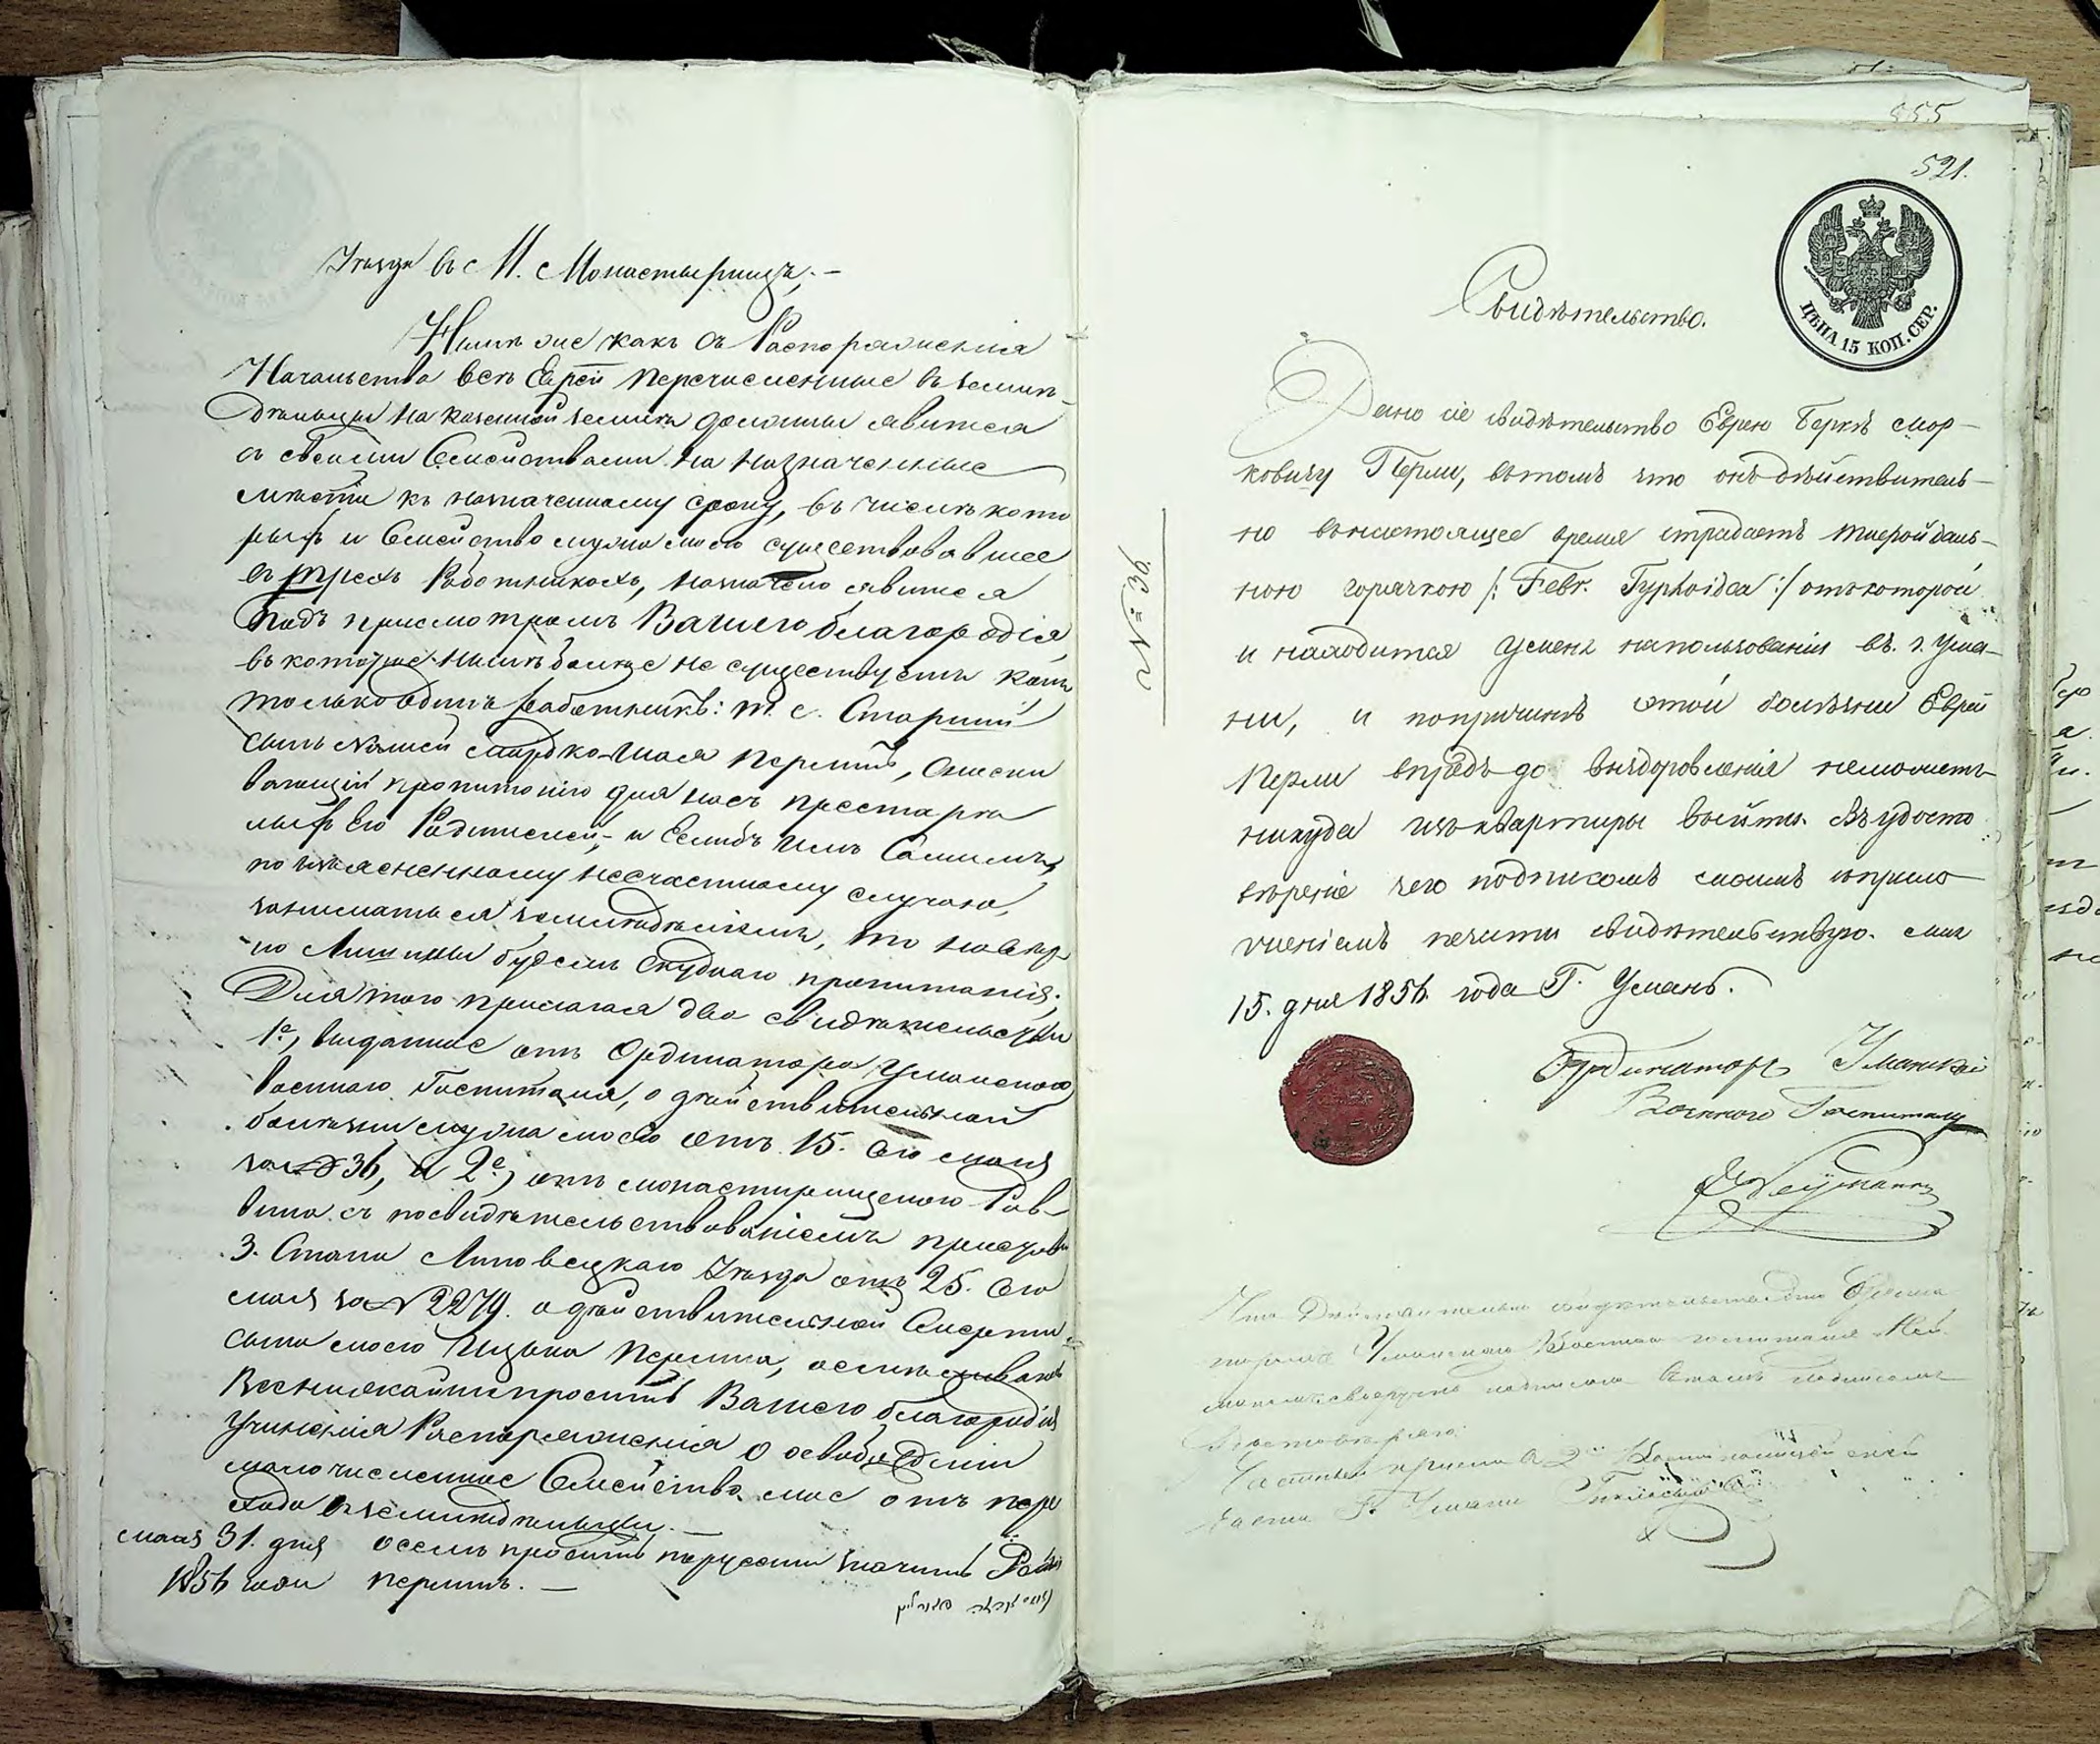 Уѣзда въ М. Монастырищѣ. —
Нынѣ же какъ съ Распоряженія
Начальства всѣ Евреи перечисленные въ земле-
дѣльцы на казенной землѣ должны явится
съ своими Семействами на Назначенные
мѣста къ назначенному сроку, въ числѣ кото
рыхъ и Семейство мужа моего существовавшее
въ трехъ Работникахъ, назначено явится
подъ присмотромъ Вашего благородія,
въ которое нынѣ больше не существуетъ какъ
только одинъ работникъ: т. е. Старшій
сынъ мой Мордко Перлинъ, сниски
вающій пропитанію для насъ престарѣ
лыхъ его Родителей, и Если
по изъясненному несчастному случаю,
заниматься земледѣліемъ, то
но Лишины будемъ скуднаго пропитанія;
Для того прилагая два свидѣтельствы
1е, выданные отъ Ординатора Уманского
Военнаго Госпиталя, о дѣйствительной
болѣзни мужа моего отъ 15. сего мая
за № 36, и 2е, отъ монастирищеного Рав-
вина съ посвидѣтельствованіемъ пристава
3. Стана Липовецкаго Уѣзда отъ 25. сего
мая за № 2279. о дѣйствительной Смерти
сына моего Ицька Перлина, осмѣливаюсь
Всенижайше просить Вашего благородія
Учиненія Распоряженія о освобожденіи
малочисленное Семейство мое отъ пере
хода въ земледѣльцы. —
мая 31. дня осемъ просить
1856 года Перлинъ. —
855
521.
ЦѢНА 15 КОП. СЕР.
Свидѣтельство.
№ 36
Дано сіе свидѣтельство Еврею Беркѣ Мор-
ковичу Перли, вътомъ что онъ дѣйствитель-
но внастоящее время страдаетъ тиеройдаль-
ною горячкою /: Febr. Typhoidea :/ откоторой
и находится уменя напользованіи въ. г. Ума-
ни, и попричинѣ этой болѣзни Еврей
Перли впредь до выздоровленія неможетъ
никуда изъквартиры выйти. Въ удосто
вѣреніе чего подписомъ моимъ сприло
женіемъ печати свидѣтельствую. мая
15. дня 1856. года Г. Умань.
Ординаторъ Уманскаго
Военного Госпиталя
Нейманъ
Что Дѣйствительно свидѣтельство
Уманского Военного госпиталя Ней
маномъ своеручно подписано вътомъ подписомъ
Удостовѣряю
Частный приставъ 2й
части Г. Умани